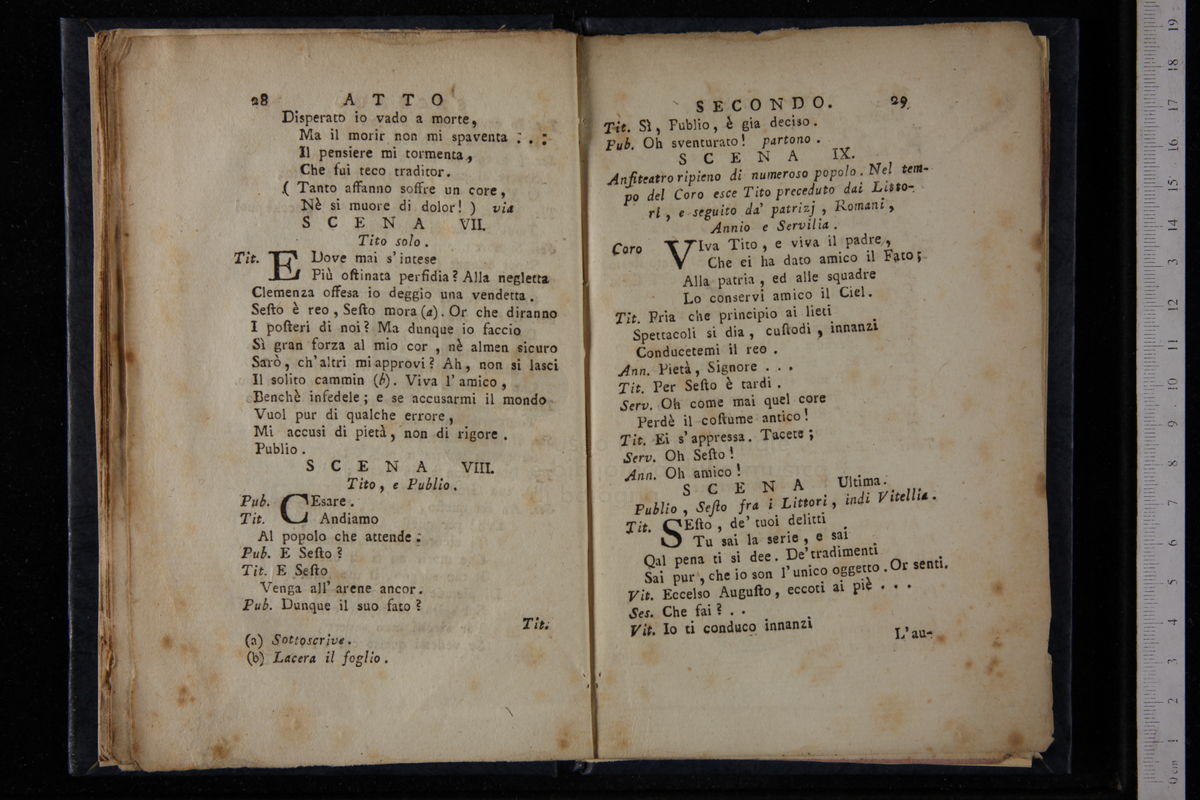 28 ATTO
Disperato io vado a morte,
Ma il morir non mi spaventa : . :
Il pensiere mi tormenta,
Che fui teco traditor.
( Tanto affanno soffre un core,
Nè si muore di dolor! ) via
SCENA VII.
Tito solo.
Tit. E Dove mai s'intese
Più oſtinata perfidia? Alla negletta
Clemenza offesa io deggio una vendetta.
Seſto è reo, Seſto mora (a). Or che diranno
I poſteri di noi? Ma dunque io faccio
Sì gran forza al mio cor, nè almen sicuro
Sarò, ch'altri mi approvi? Ah, non si lasci
Il solito cammin (b). Viva l'amico,
Benchè infedele; e se accusarmi il mondo
Vuol pur di qualche errore,
Mi accusi di pietà, non di rigore.
Publio.
SCENA VIII.
Tito, e Publio.
Pub. CEsare.
Tit. Andiamo
Al popolo che attende.
Pub. E Seſto?
Tit. E Seſto
Venga all'arene ancor.
Pub. Dunque il suo fato?
Tit.
(a) Sottoscrive.
(b) Lacera il foglio.
SECONDO. 29
Tit. Sì, Publio, è gia deciso.
Pub. Oh sventurato! partono.
SCENA IX.
Anfiteatro ripieno di numeroso popolo. Nel tem-
po del Coro esce Tito preceduto dai Litto-
ri, e seguito da' patrizj, Romani,
Annio e Servilia.
Coro VIva Tito, e viva il padre,
Che ei ha dato amico il Fato;
Alla patria, ed alle squadre
Lo conservi amico il Ciel.
Tit. Pria che principio ai lieti
Spettacoli si dia, cuſtodi, innanzi
Conducetemi il reo.
Ann. Pietà, Signore . . .
Tit. Per Seſto è tardi.
Serv. Oh come mai quel core
Perdè il coſtume antico!
Tit. Ei s'appressa. Tacete;
Serv. Oh Seſto!
Ann. Oh amico!
SCENA Ultima.
Publio, Seſto fra i Littori, indi Vitellia.
Tit. SEſto, de' tuoi delitti
Tu sai la serie, e sai
Qal pena ti si dee. De'tradimenti
Sai pur, che io son l'unico oggetto. Or senti.
Vit. Eccelso Auguſto, eccoti ai piè . . .
Ses. Che fai? . .
Vit. Io ti conduco innanzi
L'au-
0 cm 1 2 3 4 5 6 7 8 9 10 11 12 13 14 15 16 17 18 19